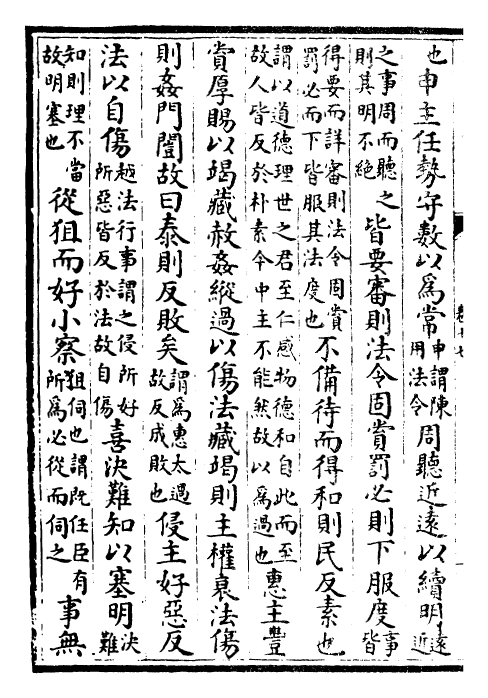 也申主任勢守數以為常申謂陳用法令周聽近遠以續明遠近
之事周而聽之則其明不絕皆要審則法令固賞罰必則下服度事皆
得要而詳審則法令固賞罰必而下皆服其法度也不備待而得和則民反素也
謂以道德理世之君至仁感物德和自此而至故人皆反於朴素今中主不能然故以為過也惠主豐
賞厚賜以竭藏赦姦縱過以傷法藏竭則主權衰法傷
則姦門闓故曰泰則反敗矣謂為惠太過故反成敗也侵主好惡反
法以自傷越法行事謂之侵所好所惡皆反於法故自傷喜決難知以塞明決難
知則理不當故明塞也從狙而好小察狙伺也謂既任臣有所為必從而伺之事無